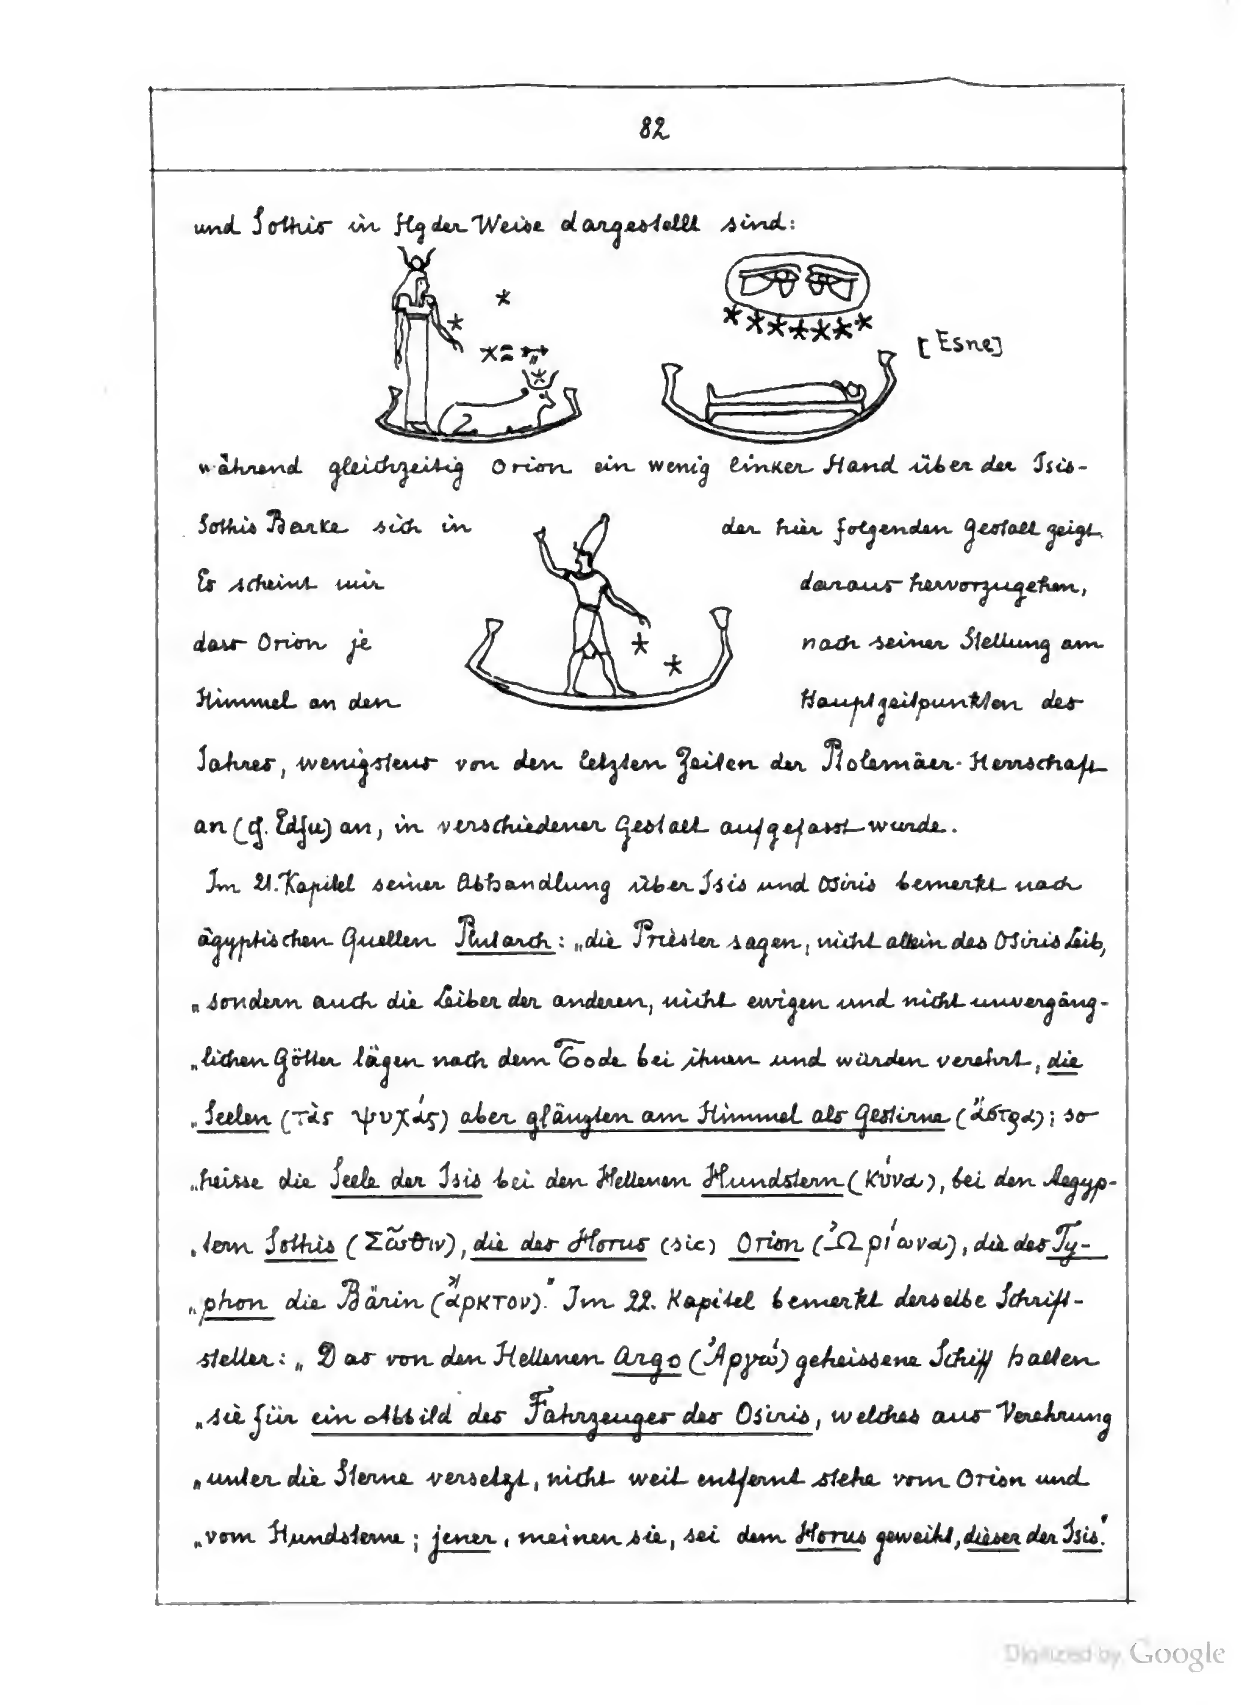 82
und Sothis in flgder Weise dargestellt sind:
[Esne]
während gleichzeitig Orion ein wenig linker Hand über der Isis-
Sothis Barke sich in der hier folgenden Gestalt zeigt.
Es scheint mir daraus hervorzugehen,
dass Orion je nach seiner Stellung am
Himmel an den Hauptzeitpunkten des
Jahres, wenigstens von den letzten Zeiten der Ptolemäer-Herrschaft
an (cf. Edfu) an, in verschiedener Gestalt aufgefasst wurde.
Im 21. Kapitel seiner Abhandlung über Isis und Osiris bemerkt nach
ägyptischen Quellen Plutarch: „die Priester sagen, nicht allein des Osiris Leib,
„sondern auch die Leiber der anderen, nicht ewigen und nicht unvergäng-
„lichen Götter lägen nach dem Tode bei ihnen und würden verehrt, die
„Seelen (τὰς ψυχάς) aber glänzten am Himmel als Gestirne (ἄστρα); so
„heisse die Seele der Isis bei den Hellenen Hundstern (κύνα), bei den Aegyp-
„tern Sothis (Σῶθιν), die des Horus (sic) Orion (Ὠρίωνα), die des Ty-
„phon die Bärin (ἄρκτον)." Im 22. Kapitel bemerkt derselbe Schrift-
steller: „Das von den Hellenen Argo (Ἀργώ) geheissene Schiff halten
„sie für ein Abbild des Fahrzeuges des Osiris, welches aus Verehrung
„unter die Sterne versetzt, nicht weit entfernt stehe vom Orion und
„vom Hundsterne; jener, meinen sie, sei dem Horus geweiht, dieser der Isis."
Digitized by Google